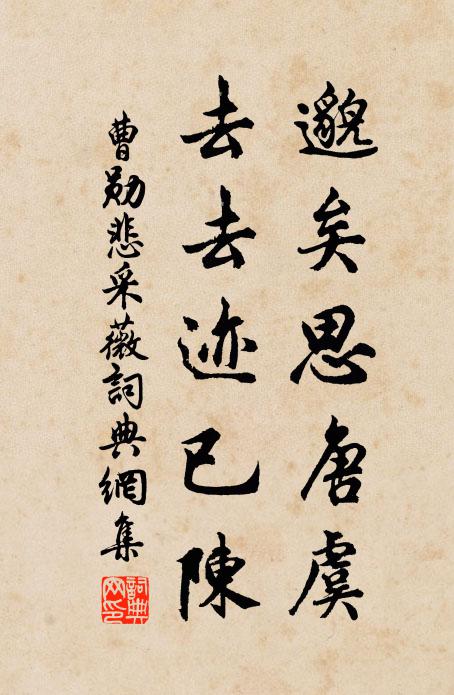 邈矣思唐虞
去去迹已陳
曹勛悲采薇詞典網集
詞典網印